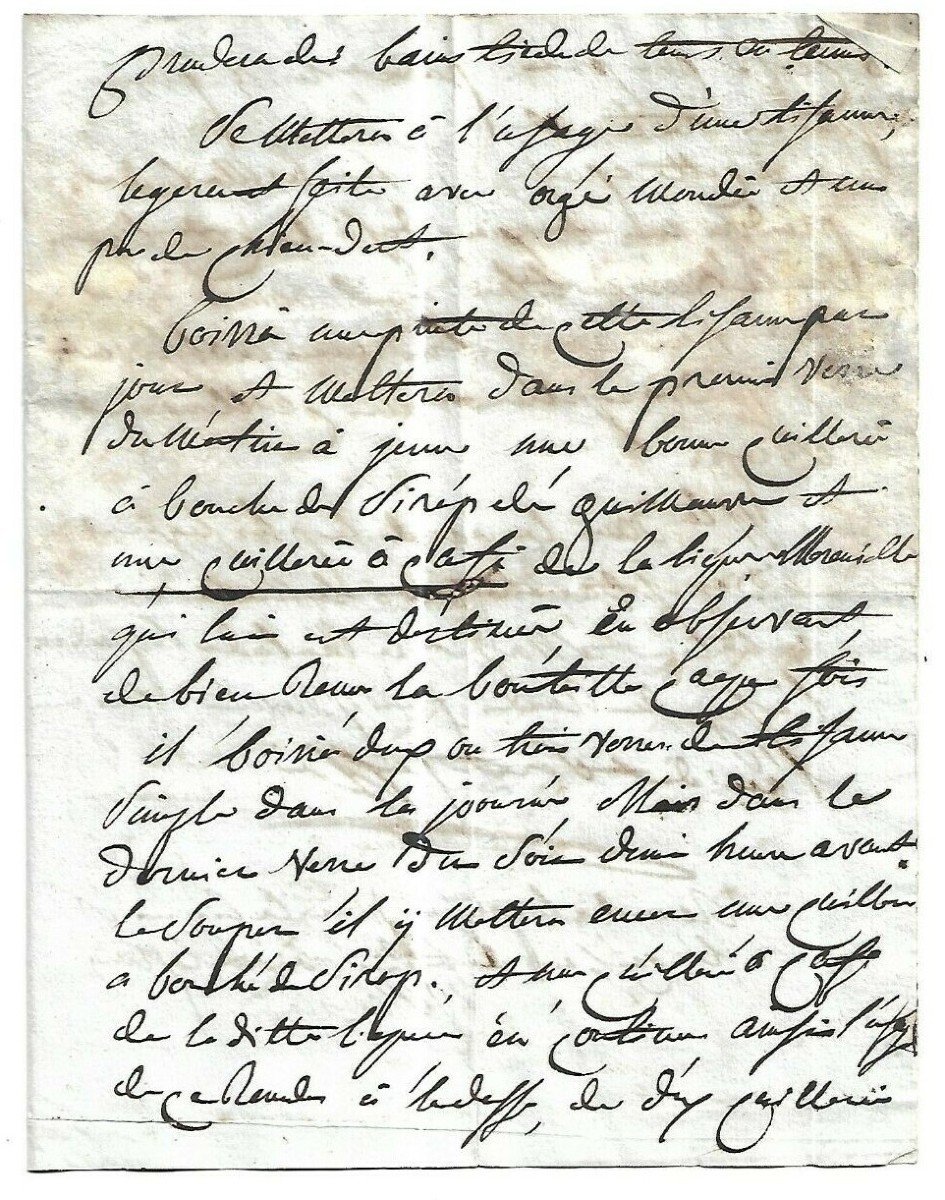 prendera des bains tiede de tems en tems.
Se Mettera à l'usage d'une tisanne,
legerement faite avec orgé Mondée et un
peu de chien-dent.
boirra une pinte de cette tisanne par
jour et Mettera dans le premier verre
du Matin à jeun une bonne cuilleré
à bouche de Sirop de guillauvre et
une cuilleré à caffé de la liqueur
qui lui est déstinée en observant
de bien Remuer la bouteille caque fois
il boirra deux ou trois verres de tisanne
Simple dans la journée Mais dans le
dernier verre du Soir demi heure avant
le Souper il y Mettera encor une cuilleré
a bouché de Sirop. et une cuilleré a caffé
de la ditte liqueur en continuer ainsis l'usage
de ce Remede à la dosse, de deux cuillerées